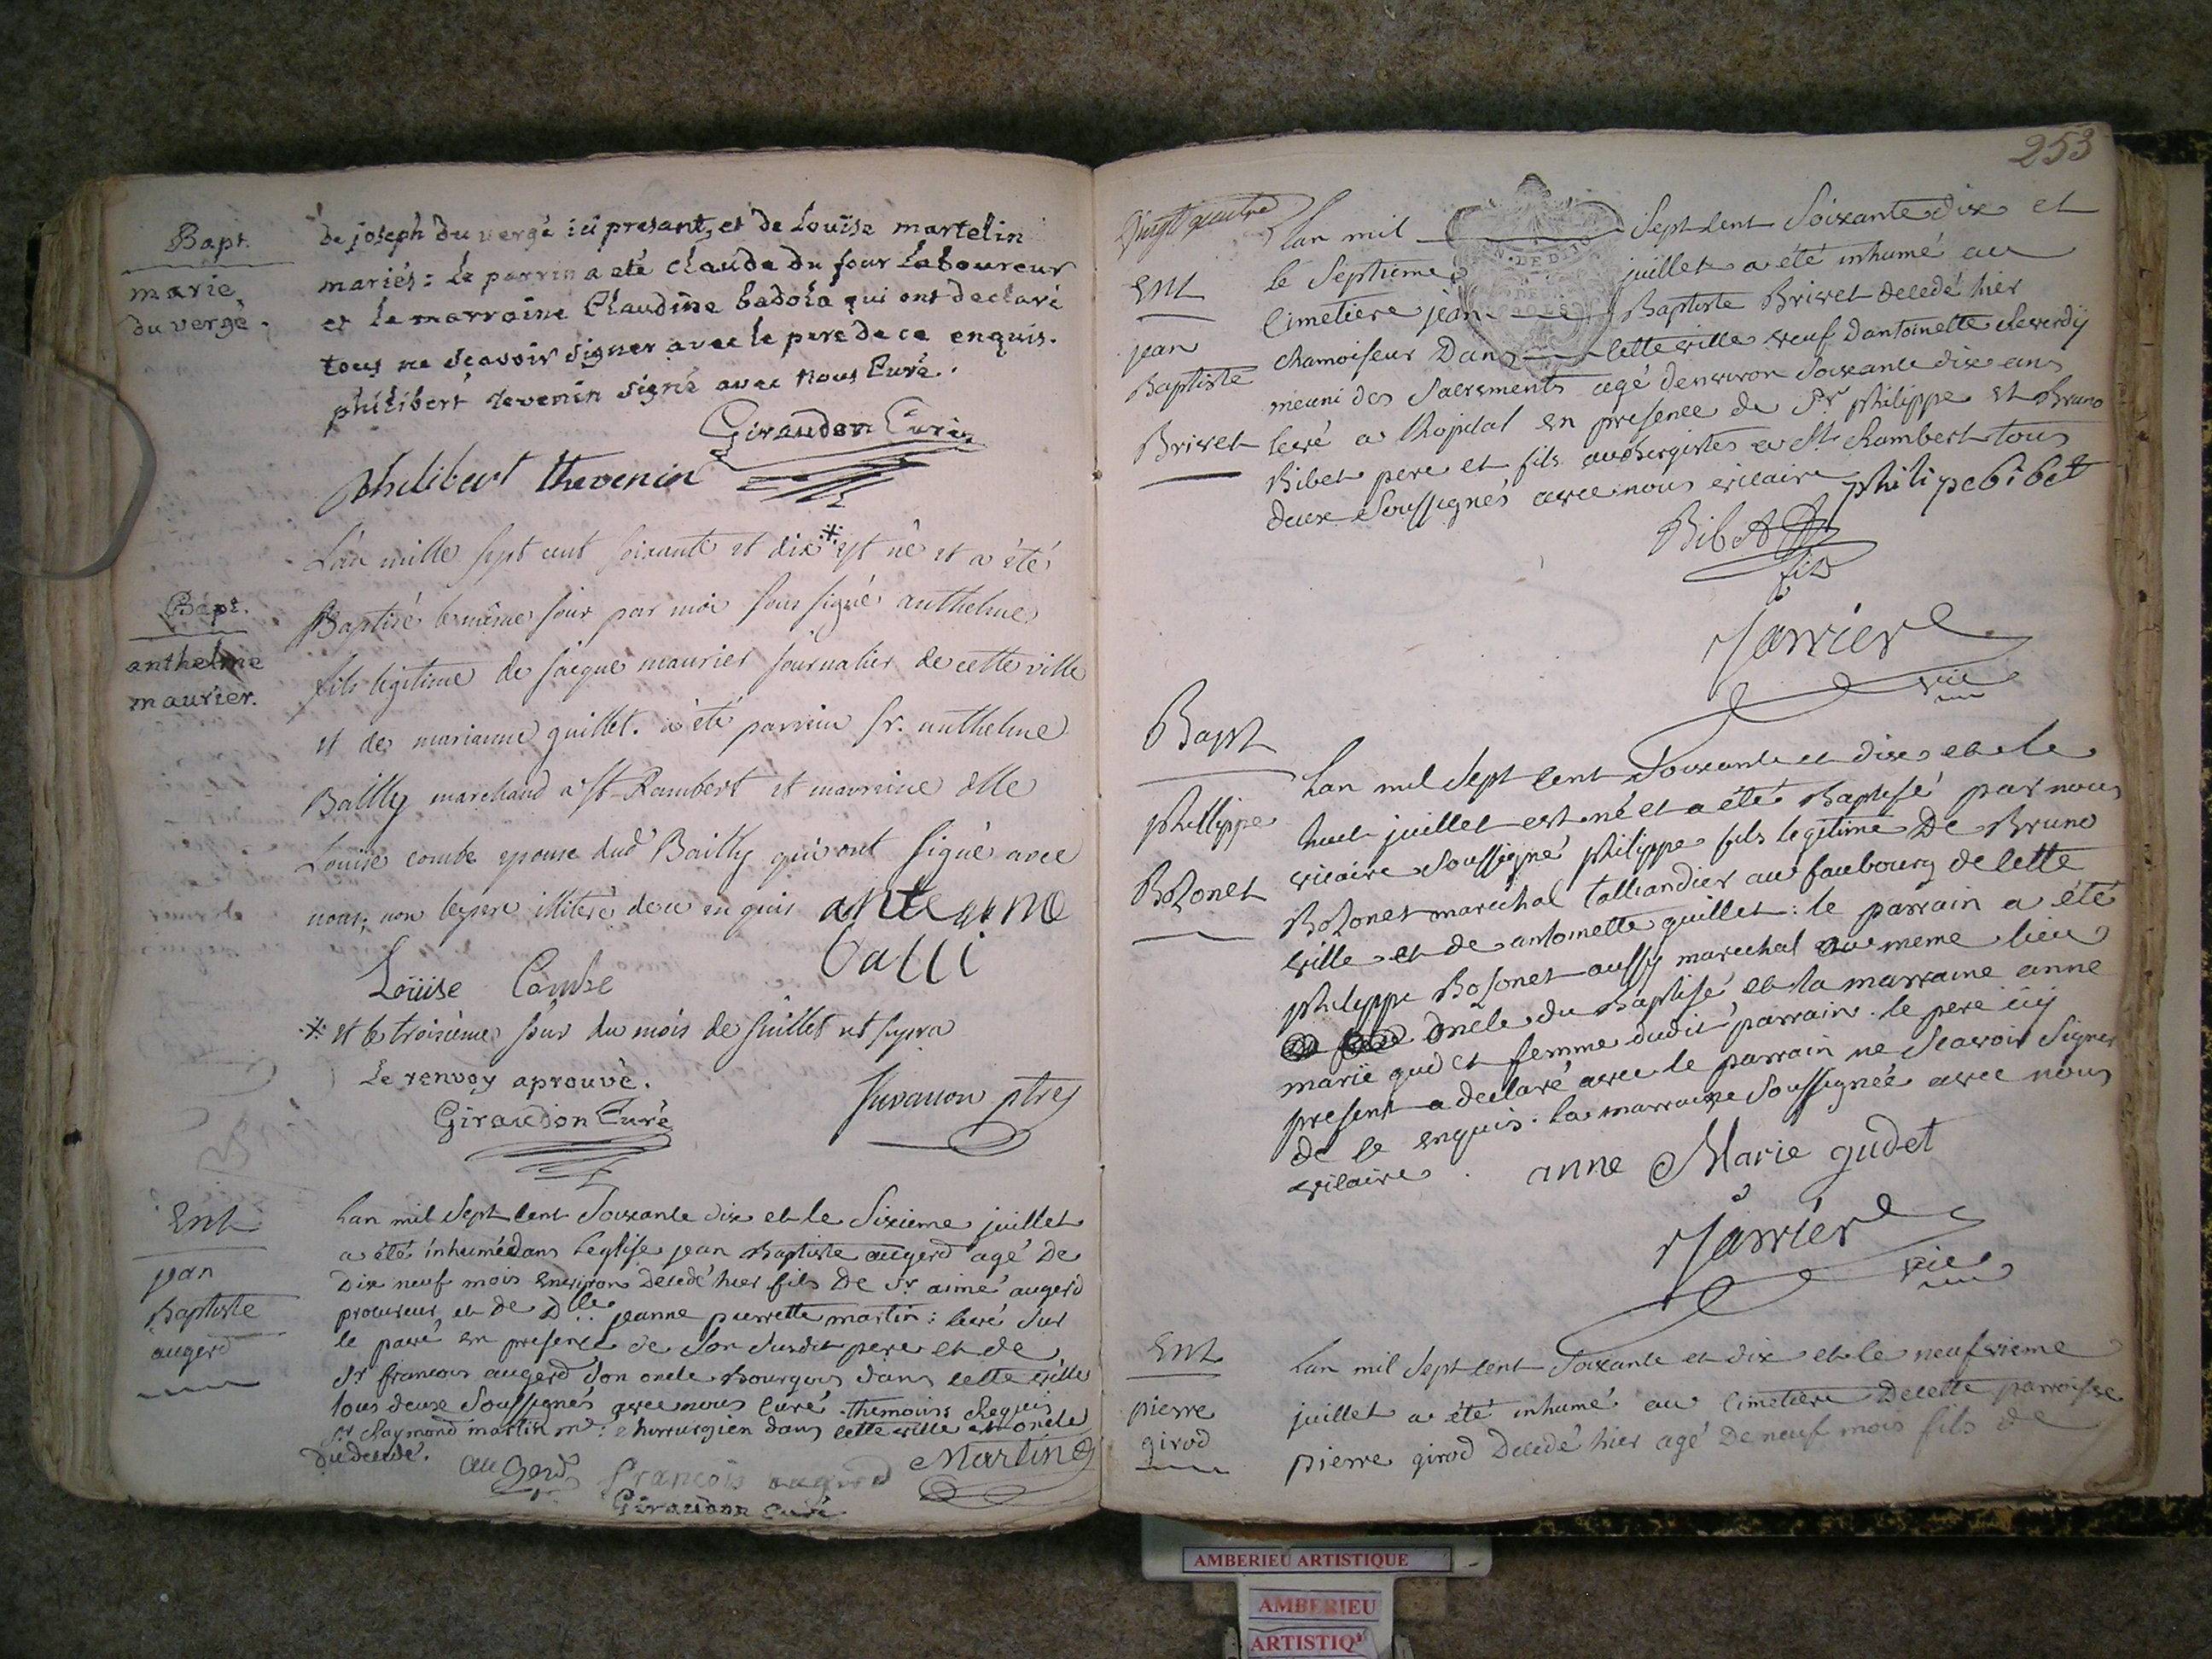 Bapt.
marie
du vergé.
de joseph du vergé ici presant, et de Louïse martelin
mariés: le parrin a eté claude du four Laboureur
et la marraine Claudine badola qui ont declaré
tous ne sçavoir signer avec le pere de ce enquis.
philibert tevenin signé avec nous Curé.
Giraudon Curé
philibert thevenin
Bapt.
anthelme
maurier.
L'an mille sept cent soixante et dix * est né et a été
Baptisé le même jour par moi sous signé anthelme
fils légitime de jacque maurier journalier de cette ville
et de marianne guillet. a été parrein sr. anthelme
Bailly marchand a St-Rambert et marreine dlle
Louise combe epouse dud Bailly qui ont signé avec
nous; non le pere illiteré de ce enquis
Loüise Combe
* et le troisième jour du mois de juillet ut supra
Le renvoy aprouvé.
Giraudon Curé
Ent
jean
Baptiste
augerd
Lan mil Sept Cent Soixante dix et le Sixieme juillet
a été inhumé dans leglise jean Baptiste augerd agé De
Dix neuf mois environ Decedé hier fils De Sr aimé augerd
procureur et de Dlle jeanne pierrette martin: levé Sur
le pavé en presence de Son Susdit pere et de
Sr francois augerd Son oncle Bourgois dans cette ville
tous deux Soussignés avec nous curé. themoins Requis
Sr Raymond martin me chirurgien dans cette ville et oncle
du decedé.
augerd francois augerd Martin
Giraudon curé
253
Vingt quatre
Ent
jean
Baptiste
Brivet
Lan mil Sept Cent Soixante dix et
le Septieme juillet a été inhumé au
Cimetiere jean Baptiste Brivet decedé hier
chamoiseur Dans cette ville veuf dantoinette
meuni des Sacrements agé denviron Soixante dix ans
levé a lhopital en presence de Sr philippe et Bruno
Bibet pere et fils aubergistes a St Rambert tous
deux Soussignés avec nous vicaire philipe bibet
Bibet
fils
Jarriere
vic
Bapt
phillippe
Bozonet
Lan mil Sept Cent Soixante et dix et le
huit juillet est né et a été Baptisé par nous
vicaire Soussigné philippe fils legitime De Bruno
Bozonet marechal talliandier au faubourg de cette
ville et de antoinette guillet: le parrain a été
philippe Bozonet aussy marechal au meme lieu
oncle du Baptisé, et la marraine anne
marie gud et femme dudit parrain. le pere icy
present a declaré avec le parrain ne Scavoir Signer
de ce enquis. la marraine Soussignée avec nous
vicaire. anne Marie gudet
Jarriere
vic
Ent
pierre
girod
Lan mil Sept Cent Soixante et dix et le neufvieme
juillet a été inhumé au Cimetiere De cette parroisse
pierre girod Decedé hier agé De neuf mois fils de
AMBERIEU ARTISTIQUE
AMBERIEU
ARTISTIQ